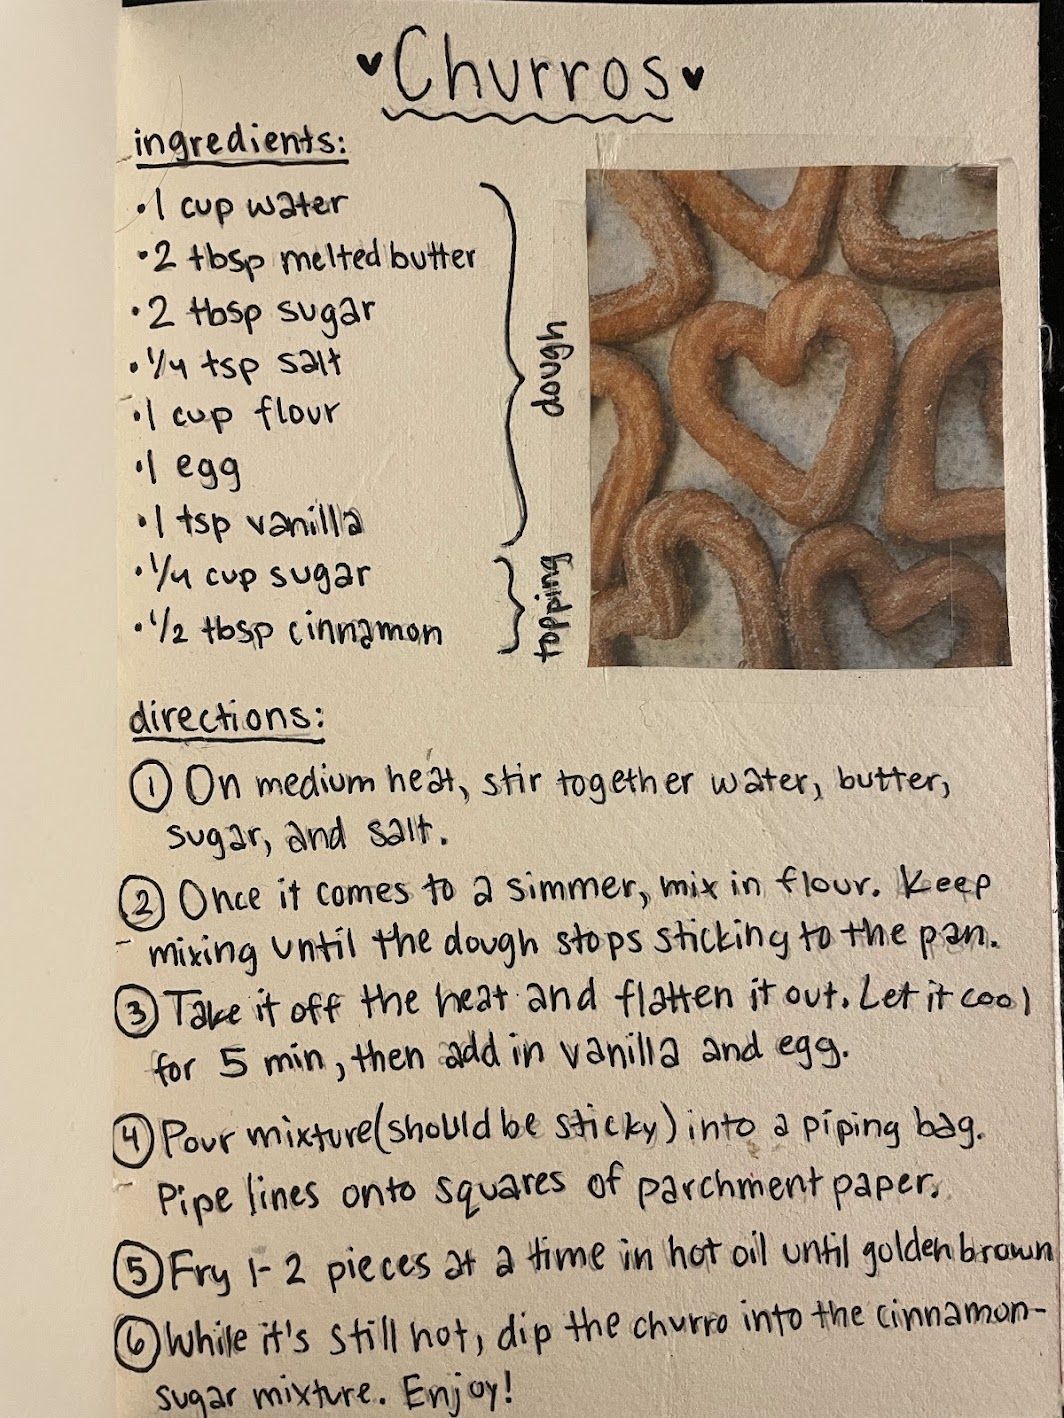 ♥Churros♥
ingredients:
•1 cup water
•2 tbsp melted butter
•2 tbsp sugar
•1/4 tsp salt
•1 cup flour
•1 egg
•1 tsp vanilla
dough
•1/4 cup sugar
•1/2 tbsp cinnamon
topping
directions:
① On medium heat, stir together water, butter,
sugar, and salt.
② Once it comes to a simmer, mix in flour. Keep
mixing until the dough stops sticking to the pan.
③ Take it off the heat and flatten it out. Let it cool
for 5 min, then add in vanilla and egg.
④ Pour mixture (should be sticky) into a piping bag.
Pipe lines onto squares of parchment paper.
⑤ Fry 1-2 pieces at a time in hot oil until golden brown
⑥ While it's still hot, dip the churro into the cinnamon-
sugar mixture. Enjoy!